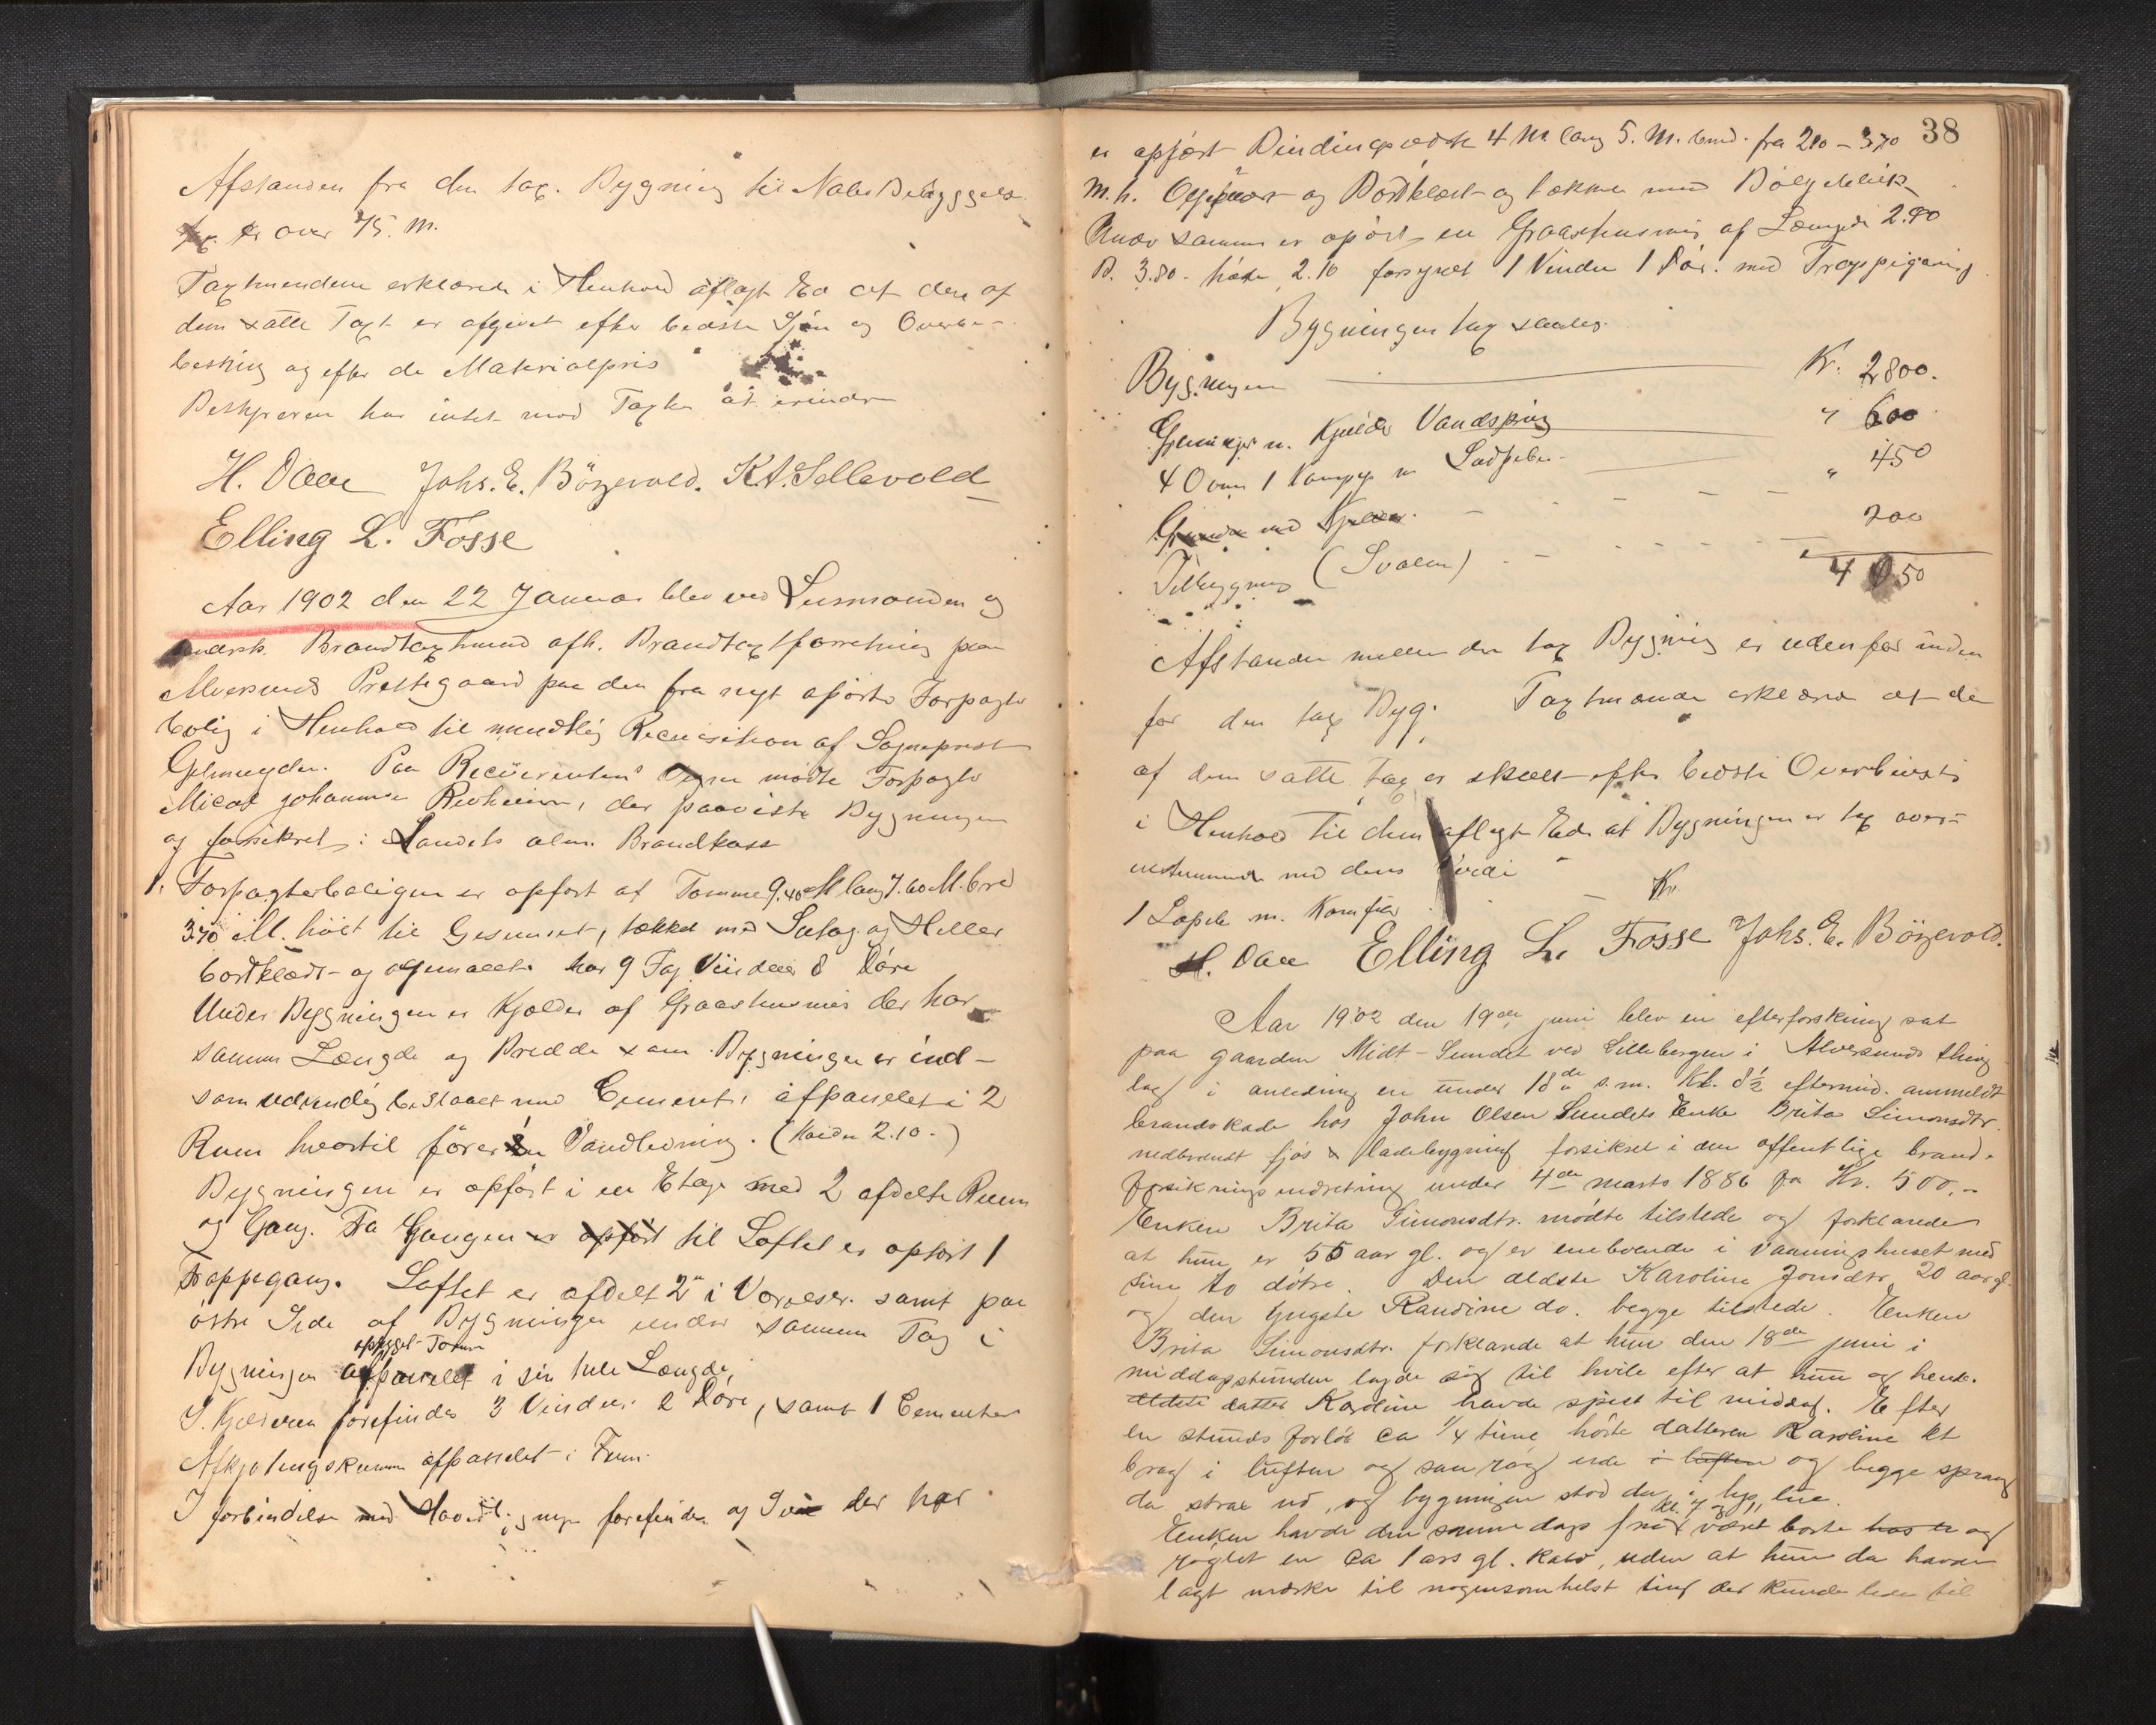 Afstanden fra den tax. Bygning til Nabo Bebyggels
er over 75. M.
Taxtmendene erklærede i Henhold aflagt Ed at den af
dem satte Taxt er afgivet efter bedste Skjøn og Overbe-
besning og efter de Materialpris
Bestyreren har intet mod Taxten at erindre
H. Daae Johs. E. Börgevold. K.A. Sellevold
Elling L. Fosse
Aar 1902 den 22 Januar blev ved Lensmanden og
Brandtaxtmænd afh. Brandtaxtforretning paa
Alversunds Prestegaard paa den fra nyt opførte Forpagter
bolig i Henhold til mundtlig Recvisition af Sogneprest
Gjelmuyden. Paa Recvirentens Vegne mødte Forpagter
Johannes der paaviste Bygningen
og forsikret i Landets alm. Brandkasse
1. Forpagterboligen er opført af Tømmer 9.40 M lang 7.60 M. bred
3.70 M. høit til Gesimset, tækket med Sutag og Heller
bordklædt og opmalet har 9 Fag Vinduer 8 Døre
Under Bygningen er Kjælder af Graastensmur der har
samme Længde og Bredde som Bygningen er ind-
som udvendig beslaaet med Cement, afpanelet i 2
Rum hvortil fører en Vandledning. (Høide 2.10.)
Bygningen er opført i en Etage med 2 afdelte Rum
og Gang. Fra Gangen er opført til Loftet er opført 1
Trappegang. Loftet er afdelt i 2 Værelser samt paa
østre Side af Bygningen under samme Tag i
opbygget Tømmer
Bygningen afpanelet i sin hele Længde
I Kjelderen forefindes 3 Vinduer 2 Døre, samt 1 Cementer
Afkjølingskumme afpanelet i Rum.
I forbindelse med forefindes og Sval der har
38
er opført Bindingsværk 4 M lang 5. M. bred. fra 210 - 370
M. h. og Bordklædt og tækket med Bølgeblik
Under samme er opført en Graastensmur af Længde 2.80
B. 3.80. høide 2.10 forsynet 1 Vindu 1 Dør. med Trappegang
Bygningen tax saaledes.
Bygningen Kr. 2800.
Grundmur m. Kjelder Vandspring " 600
4 Ovne 1 Komfyr m " 450
Grunden med Kjelder.
Tilbygning (Svalen) 200
4050
Afstanden mellem den tax Bygning er udenfor inden
for den tax Byg. Taxtmændene erklærede at den
af dem satte tax er skeet efter bedste Overbevis
i Henhold til den aflagt Ed at Bygningen er tax over-
enstemmende med dens Værdi
Kr.
1 m. Komfur
H. Daae Elling L. Fosse Johs. E. Börgevold.
Aar 1902 den 19de juni blev en efterforskning sat
paa gaarden Midt-Sundet ved Lillebergen i Alversunds thing
lag i anledning en under 18de s.m. Kl. 8½ eftermid. anmeldt
brandskade hos John Olsen Sundets Enke Brita Simonsdtr.
nedbrændt fjøs & ladebygning forsikret i den offentlige brand-
forsikringsindretning under 4de marts 1886 for Kr. 500,-
Enken Brita Simonsdtr. mødte tilstede og forklarede
at hun er 55 aar gl. og er eneboende i vaaningshuset med
sine to døtre. Den ældste Karoline Jonsdtr. 20 aar gl.
og den yngste Randine do. begge tilstede. Enken
Brita Simonsdtr. forklarede at hun den 18de juni i
middagsstunden lagde sig til hvile efter at hun og hendes
ældste datter Karoline havde spist til middag. Efter
en stunds forløb ca ¼ time hørte datteren Karoline et
brag i luften og saa røg ude i luften og begge sprang
da strax ud, og bygningen stod da i lys lue.
kl. 7
Enken havde den samme dags f.m. været borte hos en og
røgtet en ca 1 aars gl. kalv, uden at hun da havde
lagt mærke til nogensomhelst ting der kunde lede til